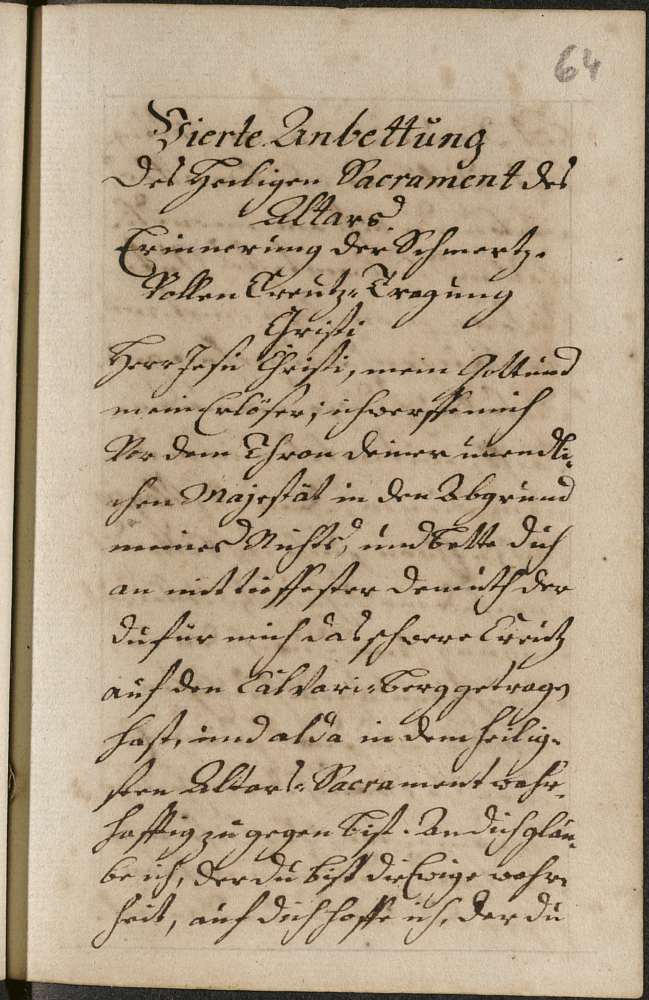 64
Vierte Anbettung
Des Heiligen Sacrament des
Altars
Erinnerung der Schmertz-
Vollen Creutz-Tragung
Christi
Herr Jesu Christi, mein Gott und
mein Erlöser; ich werffe mich
Vor dem Thron deiner unendli-
chen Majestät in den Abgrund
meines Nichts, und bette dich
an mit tieffester demuth der
du für mich das schwere Creutz
auf den Calvari-Berg getragen
hast, und alda in dem heilig-
sten Altars-Sacrament wahr-
hafftig zu gegen bist. An dich glau-
be ich, der du bist die Ewige wahr-
heit, auf dich hoffe ich, der du